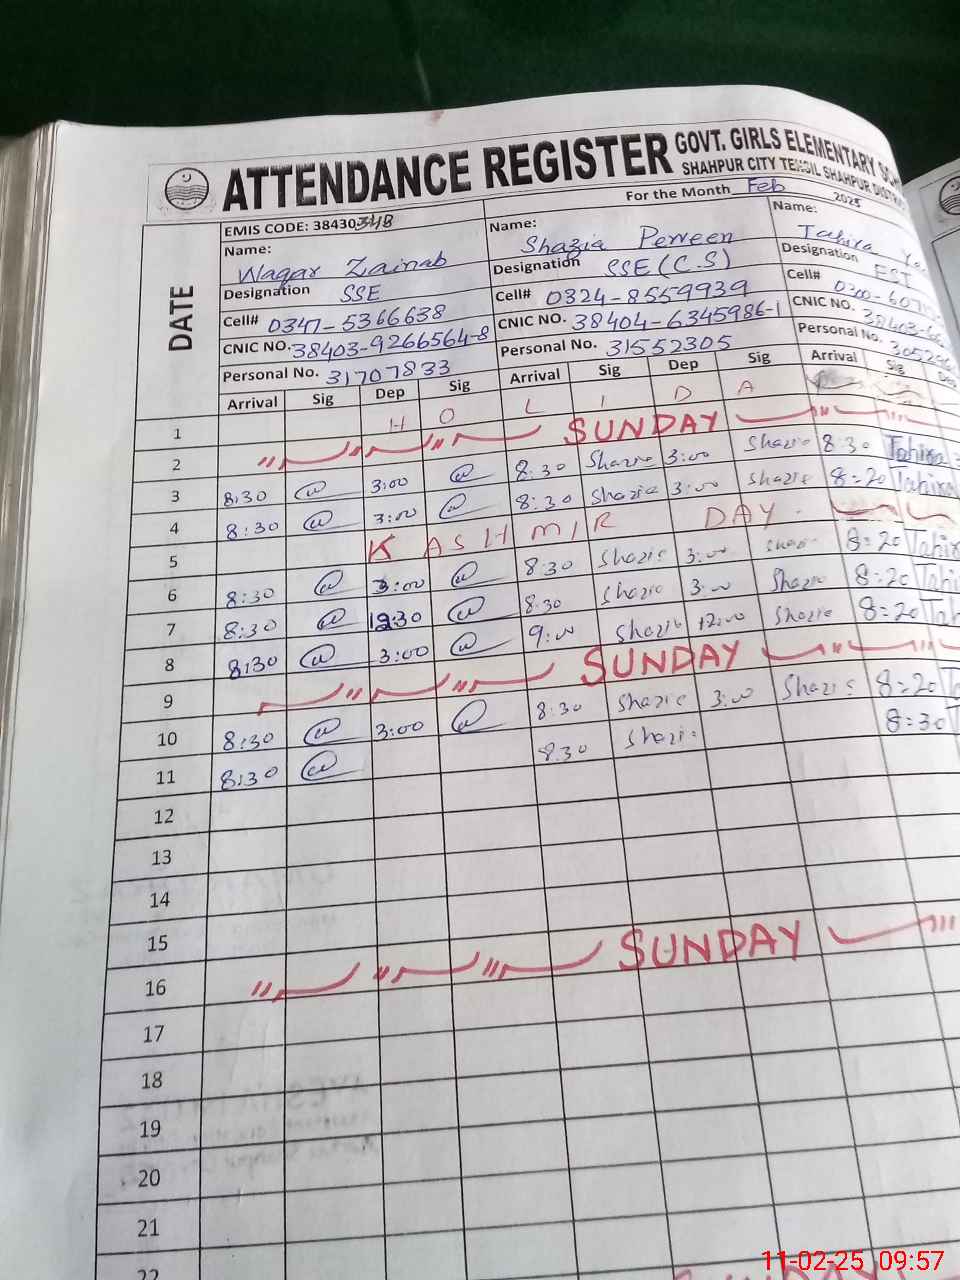 ATTENDANCE REGISTER GOVT. GIRLS ELEMENTARY
SHAHPUR CITY TEHSIL SHAHPUR
For the Month Feb 2025
DATE
EMIS CODE: 38430348
Name: Waqar Zainab
Designation SSE
Cell# 0347-5366638
CNIC NO. 38403-9266564-8
Personal No. 31707833
Name: Shazia Perveen
Designation SSE (C.S)
Cell# 0324-8559939
CNIC NO. 38404-6345986-1
Personal No. 31552305
Name: Tahira
Designation EST
Cell#
CNIC NO.
Personal No.
Arrival Sig Dep Sig Arrival Sig Dep Sig Arrival Sig
1 H O L I D A
2 " " " SUNDAY " "
3 8:30 3:00 8:30 Shazia 3:00 Shazie 8:30 Tahira
4 8:30 3:00 8:30 Shazia 3:00 Shazie 8=20 Tahira
5 KASHMIR DAY.
6 8:30 3:00 8:30 Shazie 3:00 8=20 Tahir
7 8:30 12:30 8:30 Shazie 3:00 Shazie 8=20
8 8:30 3:00 9:00 Shazie 12:00 Shazie 8=20
9 " " SUNDAY " "
10 8:30 3:00 8:30 Shazie 3:00 Shazie 8=20
11 8:30 8:30 Shazi 8=30
12
13
14
15
16 " " " SUNDAY "
17
18
19
20
21
22
11-02-25 09:57